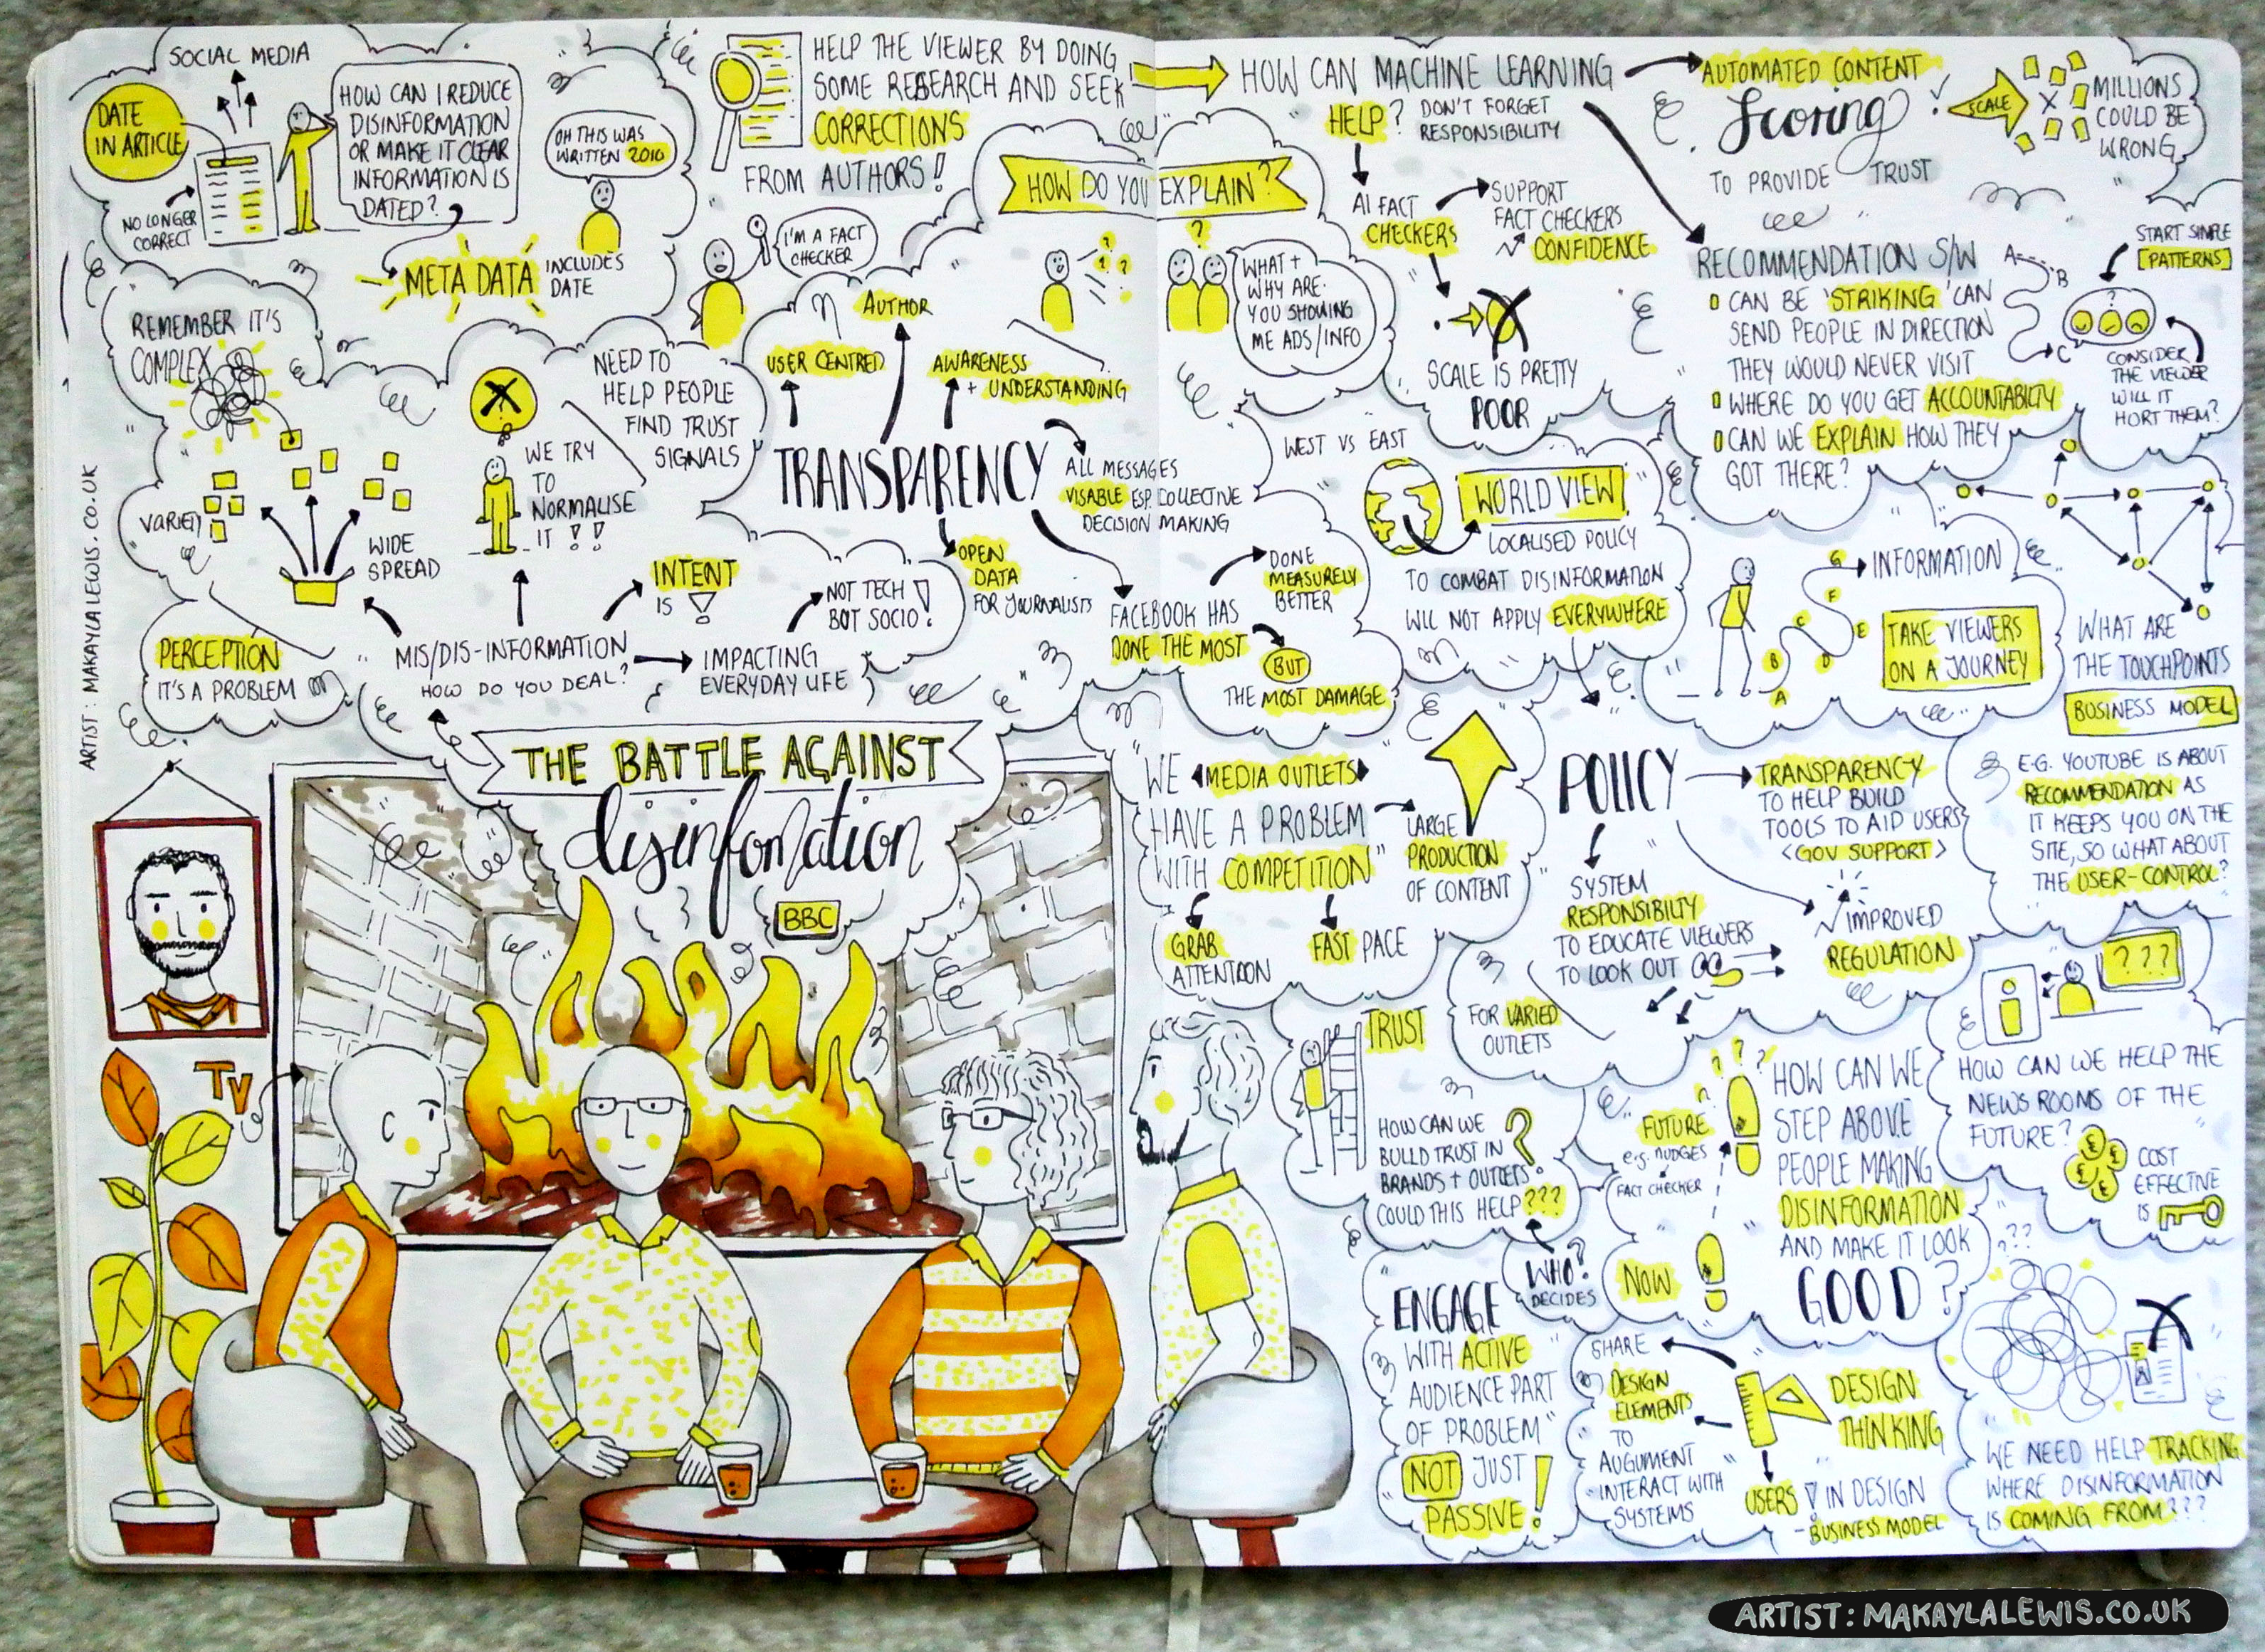 SOCIAL MEDIA
DATE
IN ARTICLE
NO LONGER
CORRECT
HOW CAN I REDUCE
DISINFORMATION
OR MAKE IT CLEAR
INFORMATION IS
DATED?
META DATA
INCLUDES
DATE
OH THIS WAS
WRITTEN 2010
HELP THE VIEWER BY DOING
SOME RESEARCH AND SEEK
CORRECTIONS
FROM AUTHORS!
I'M A FACT
CHECKER
HOW DO YOU EXPLAIN?
WHAT +
WHY ARE
YOU SHOWING
ME ADS/INFO
HOW CAN MACHINE LEARNING
HELP?
DON'T FORGET
RESPONSIBILITY
AI FACT
CHECKERS
SUPPORT
FACT CHECKERS
CONFIDENCE
SCALE IS PRETTY
POOR
AUTOMATED CONTENT
Scoring
TO PROVIDE TRUST
SCALE
MILLIONS
COULD BE
WRONG
RECOMMENDATION S/W
CAN BE 'STRIKING' CAN
SEND PEOPLE IN DIRECTION
THEY WOULD NEVER VISIT
WHERE DO YOU GET ACCOUNTABILTY
CAN WE EXPLAIN HOW THEY
GOT THERE?
A
B
C
START SIMPLE
[PATTERNS]
CONSIDER
THE VIEWER
WILL IT
HORT THEM?
REMEMBER IT'S
COMPLEX
VARIETY
WIDE
SPREAD
WE TRY
TO
NORMALISE
IT !!
NEED TO
HELP PEOPLE
FIND TRUST
SIGNALS
AUTHOR
USER CENTRED
AWARENESS
+ UNDERSTANDING
TRANSPARENCY
ALL MESSAGES
VISABLE ESP. COLLECTIVE
DECISION MAKING
OPEN
DATA
FOR JOURNALISTS
FACEBOOK HAS
DONE THE MOST
DONE
MEASURELY
BETTER
BUT
THE MOST DAMAGE
WEST VS EAST
WORLD VIEW
LOCALISED POLICY
TO COMBAT DISINFORMATION
WILL NOT APPLY EVERYWHERE
INFORMATION
A
B
C
D
E
F
G
TAKE VIEWERS
ON A JOURNEY
WHAT ARE
THE TOUCHPOINTS
BUSINESS MODEL
E.G. YOUTUBE IS ABOUT
RECOMMENDATION AS
IT KEEPS YOU ON THE
SITE, SO WHAT ABOUT
THE USER-CONTROL?
PERCEPTION
IT'S A PROBLEM
MIS/DIS-INFORMATION
HOW DO YOU DEAL?
INTENT
IS !
IMPACTING
EVERYDAY LIFE
NOT TECH
BOT SOCIO!
THE BATTLE AGAINST
disinfomation
BBC
TV
"WE
MEDIA OUTLETS
HAVE A PROBLEM
WITH COMPETITION"
LARGE
PRODUCTION
OF CONTENT
GRAB
ATTENTION
FAST PACE
POLICY
TRANSPARENCY
TO HELP BUILD
TOOLS TO AID USERS
<GOV SUPPORT>
IMPROVED
REGULATION
SYSTEM
RESPONSIBILTY
TO EDUCATE VIEWERS
TO LOOK OUT
FOR VARIED
OUTLETS
TRUST
HOW CAN WE
BUILD TRUST IN
BRANDS + OUTLETS
COULD THIS HELP???
WHO?
DECIDES
???
HOW CAN WE HELP THE
NEWS ROOMS OF THE
FUTURE?
COST
EFFECTIVE
IS
FUTURE
e.g. NUDGES
FACT CHECKER
NOW
HOW CAN WE
STEP ABOVE
PEOPLE MAKING
DISINFORMATION
AND MAKE IT LOOK
GOOD?
ENGAGE
WITH ACTIVE
AUDIENCE PART
OF PROBLEM"
NOT JUST
PASSIVE!
SHARE
DESIGN
ELEMENTS
TO
AUGUMENT
INTERACT WITH
SYSTEMS
DESIGN
THINKING
USERS ! IN DESIGN
- BUSINESS MODEL
???
WE NEED HELP TRACKING
WHERE DISINFORMATION
IS COMING FROM???
ARTIST: MAKAYLALEWIS.CO.UK
ARTIST: MAKAYLALEWIS.CO.UK